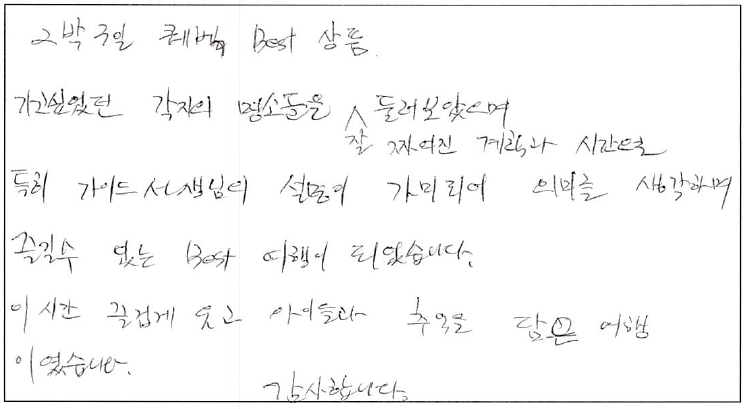 2박 3일 퀘벡 Best 상품.
가고싶었던 각지의 명소들을 둘러보았으며
잘 짜여진 계획과 시간으로
특히 가이드 선생님의 설명이 가미되어 의미를 생각하며
즐길수 있는 Best 여행이 되었습니다.
이 시간 즐겁게 웃고 아이들과 추억을 담은 여행
이였습니다.
감사합니다.